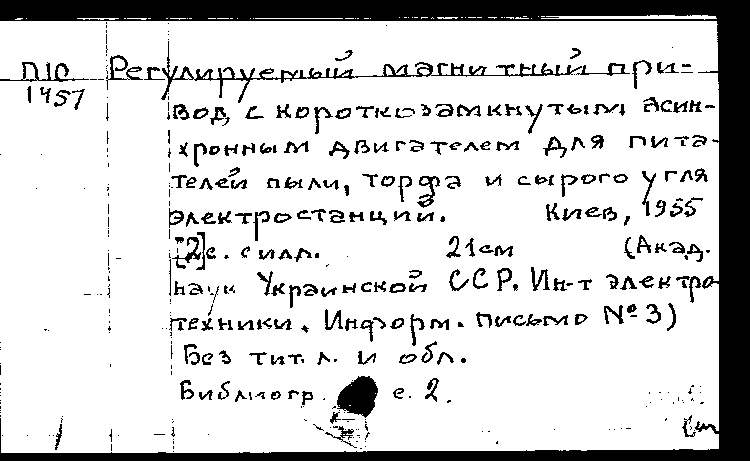 П10 Регулируемый магнитный при-
1457
вод с короткозамкнутым асин-
хронным двигателем для пита-
телей пыли, торфа и сырого угля
электростанций. Киев, 1955
[2]с. с илл. 21см (Акад.
наук Украинской ССР. Ин-т электро
техники. Информ. письмо № 3)
Без тит. л. и обл.
Библиогр. с. 2.